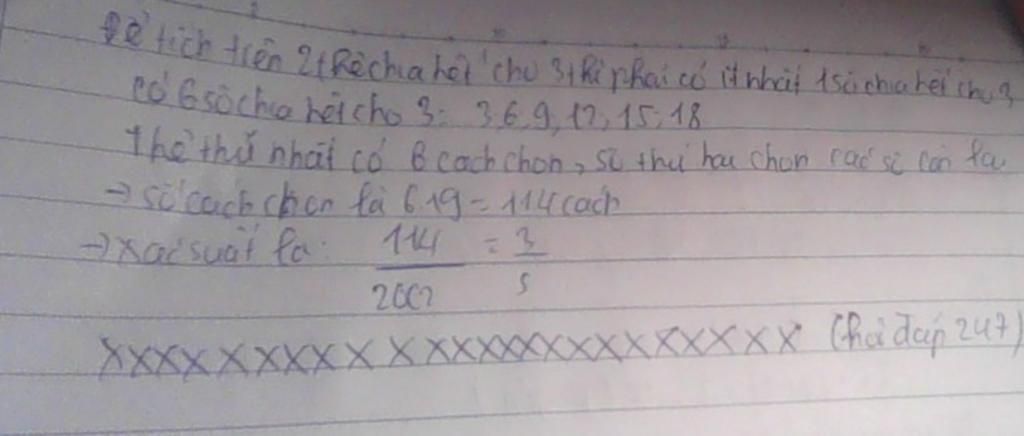 Để tích trên 2 thẻ chia hết cho 3 thì phải có ít nhất 1 số chia hết cho 3
có 6 số chia hết cho 3: 3,6,9,12,15,18
Thẻ thứ nhất có 6 cách chọn, số thứ hai chọn các số còn lại
→ số cách chọn là 6.19 = 114 cách
→ xác suất là: 114/20C2 = 3/5
XXXXXXXXXXXXXXXXXXXXXXX (hỏi đáp 247)